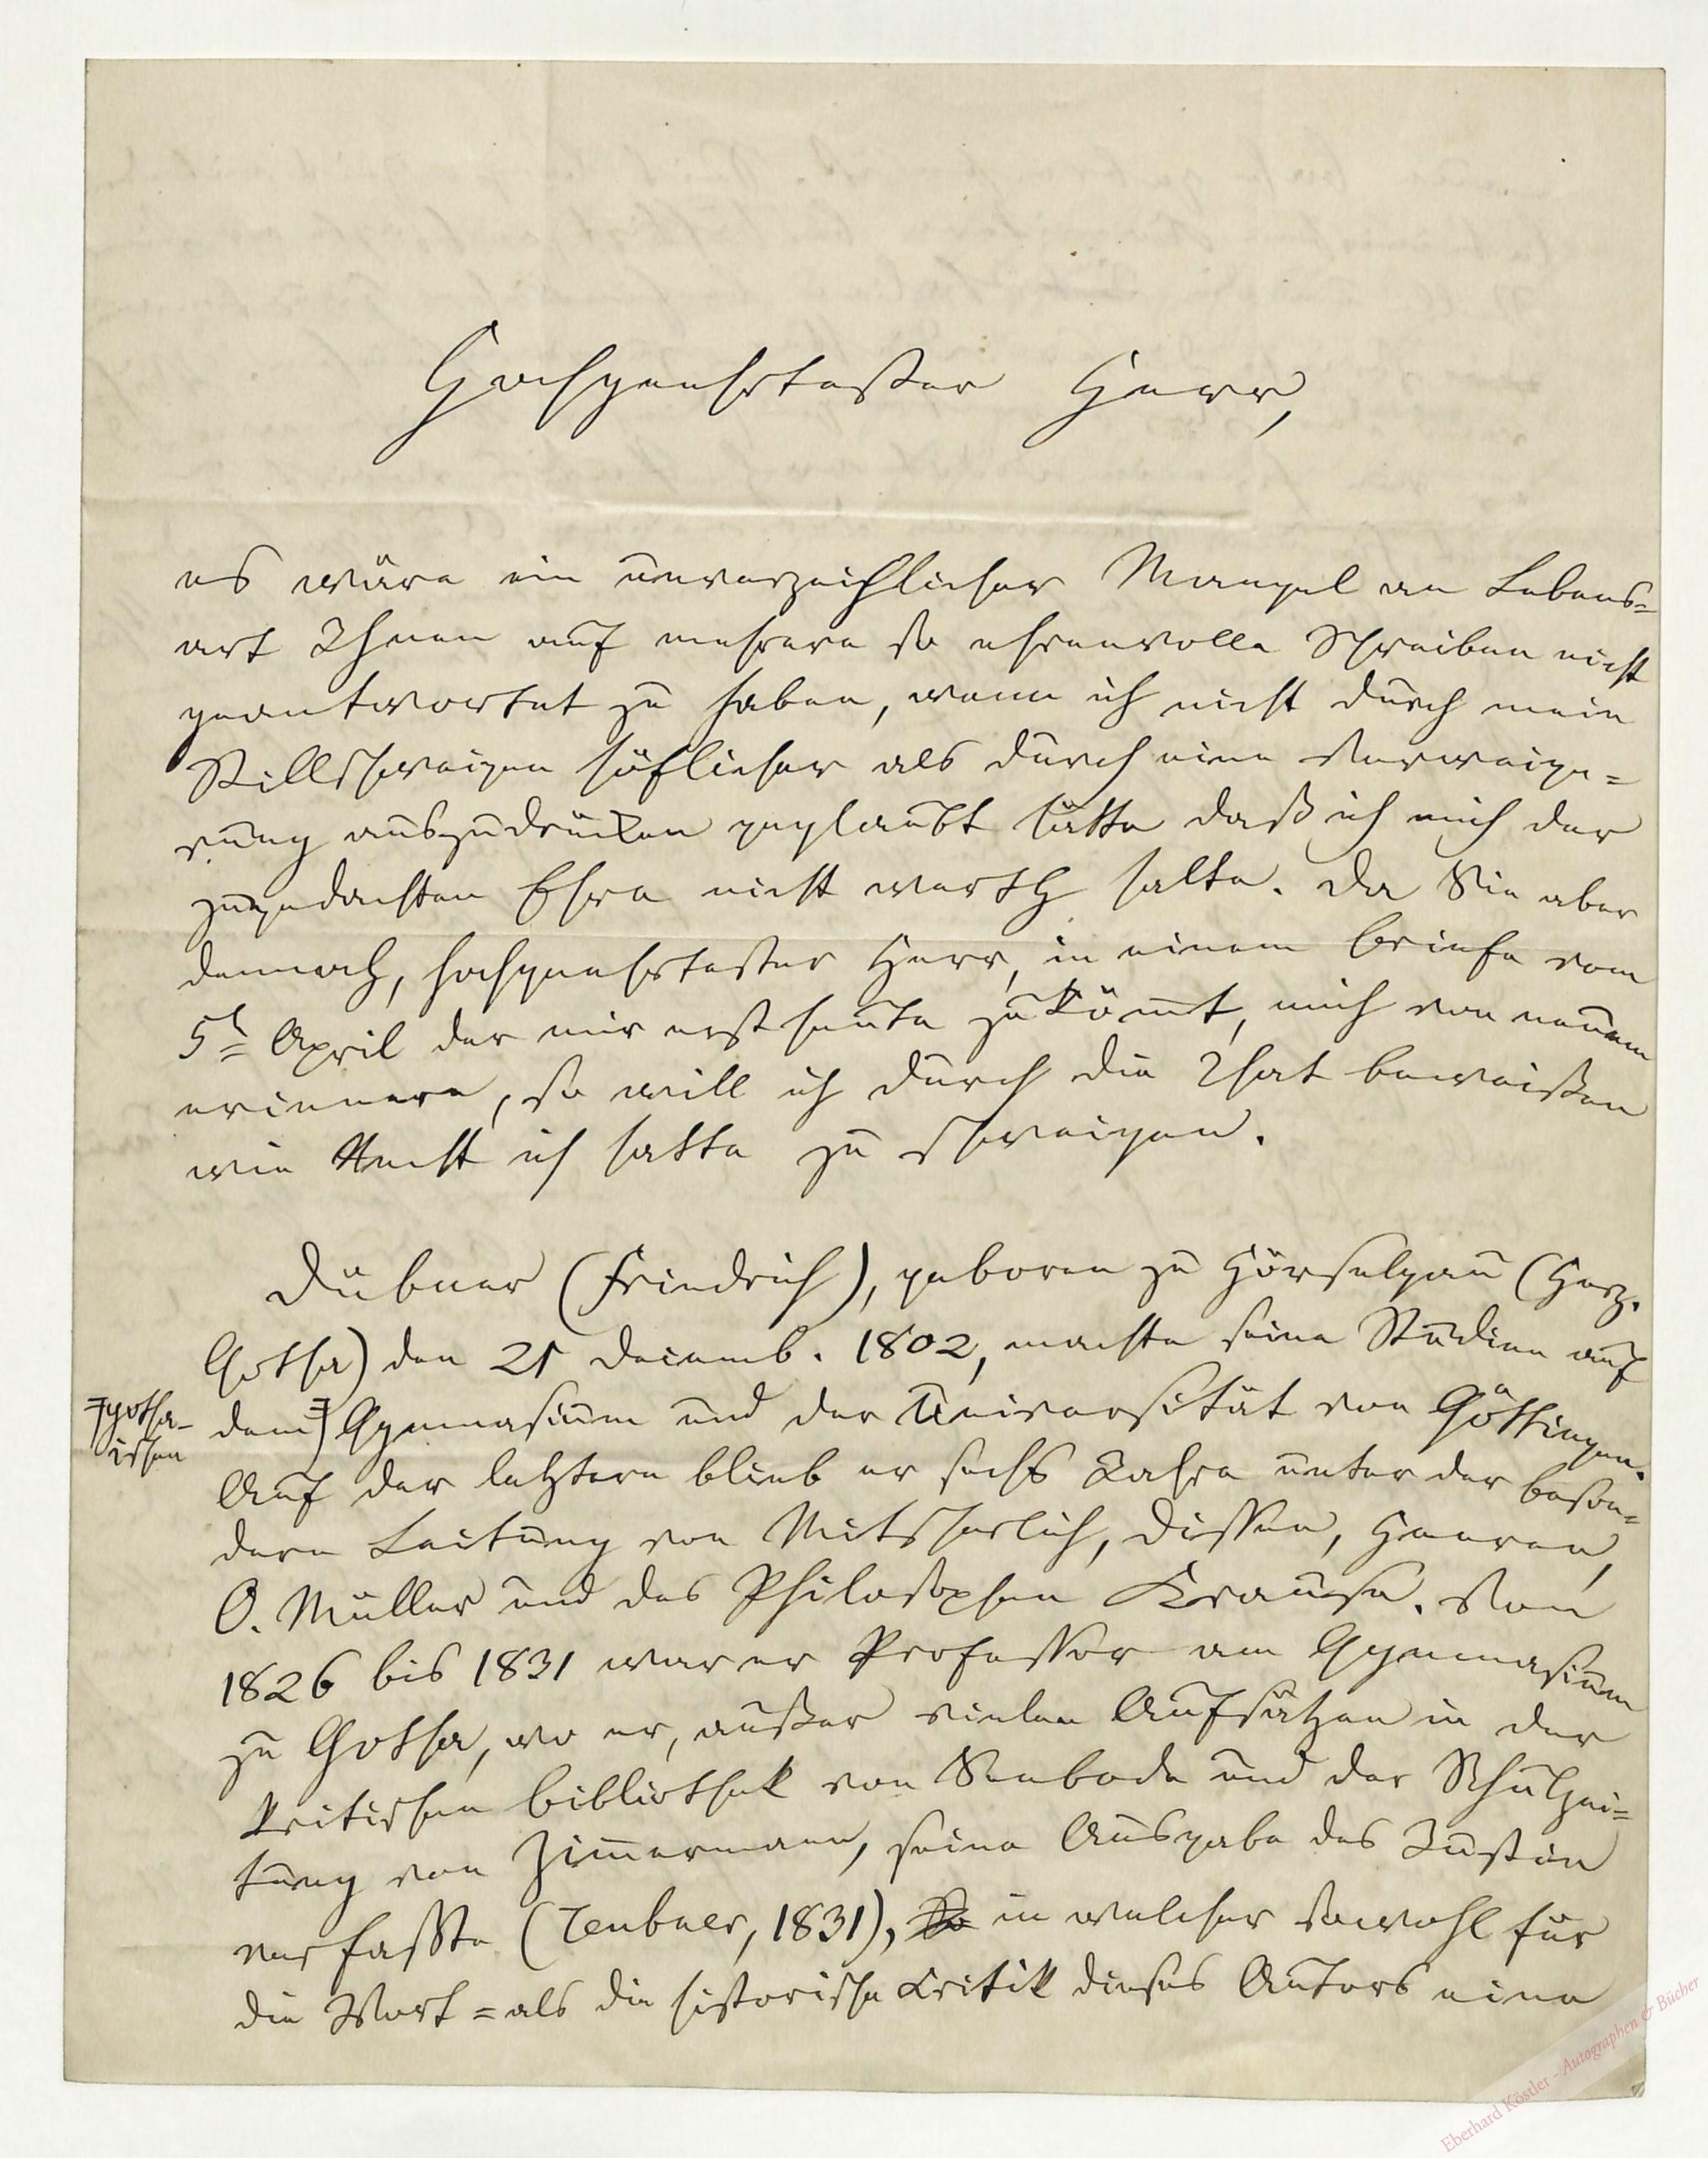 Hochgeehrtester Herr,
es wäre ein unverzeihlicher Mangel an Lebens=
art Ihnen auf mehrere so ehrenvolle Schreiben nicht
geantwortet zu haben, wenn ich nicht durch mein
Stillschweigen höflicher als durch eine Verweige=
rung auszudrücken geglaubt hätte daß ich mich der
zugedachten Ehre nicht werth halte. Da Sie aber
dennoch, hochgeehrtester Herr, in einem Briefe vom
5t April der mir erst heute zukömt, mich von neuem
erinnern, so will ich durch die That beweißen
wie Recht ich hatte zu schweigen.
Dübner (Friedrich), geboren zu Hörselgau (Herz.
Gotha) den 21 Decemb. 1802, machte seine Studien auf
dem Gymnasium und der Universität von Göttingen.
gotha-
ischen
Auf der letztern blieb er sechs Jahre unter der beson=
dern Leitung von Mitscherlich, Dissen, Heeren,
O. Müller und des Philosophen Krause. Von
1826 bis 1831 war er Professor am Gymnasium
zu Gotha, wo er, außer vielen Aufsätzen in der
kritischen Bibliothek von Seebode und der Schulzei=
tung von Zimmermann, seine Ausgabe des Justin
verfaßte (Teubner, 1831), in welcher sowohl für
die Wort = als die historische Critik dieses Autors eine
Eberhard Köstler - Autographen & Bücher